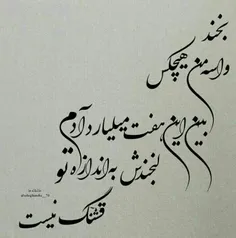 بخند
واسه من هیچکس
بین این هفت میلیارد آدم
لبخندش به اندازه تو
قشنگ نیست